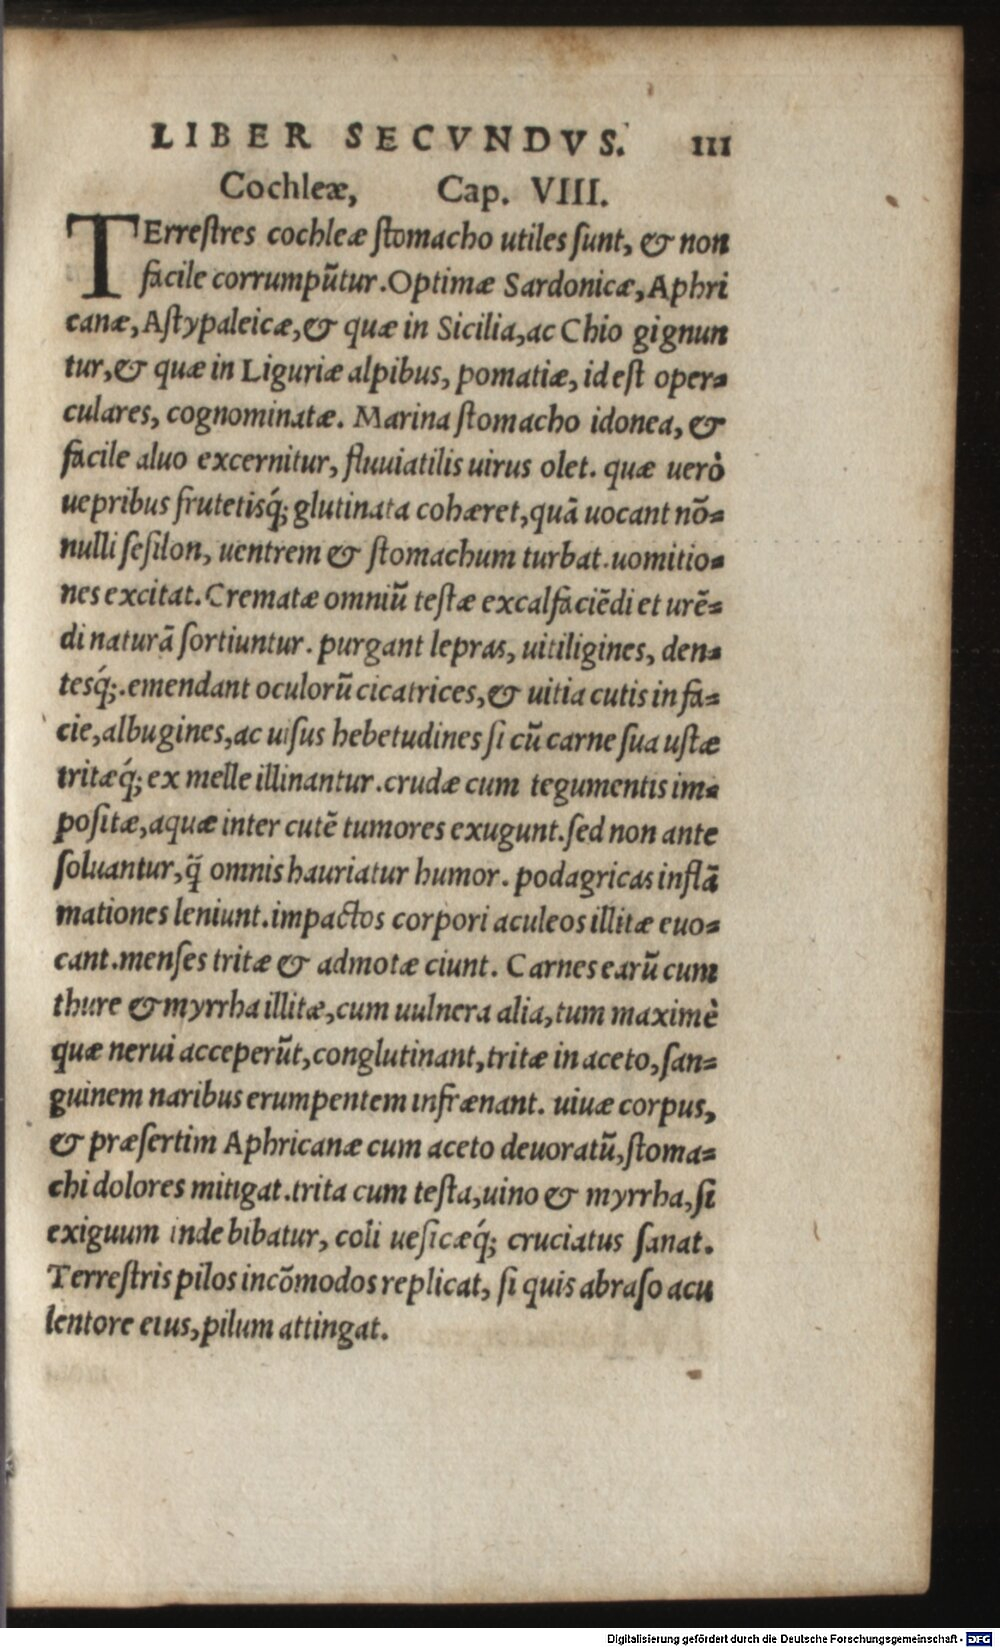 LIBER SECVNDVS. 111
Cochleæ, Cap. VIII.
TErreſtres cochleæ ſtomacho utiles ſunt, & non
facile corrumpūtur. Optimæ Sardonicæ, Aphri
canæ, Aſtypaleicæ, & quæ in Sicilia, ac Chio gignun
tur, & quæ in Liguriæ alpibus, pomatiæ, id eſt oper-
culares, cognominatæ. Marina ſtomacho idonea, &
facile aluo excernitur, fluuiatilis uirus olet. quæ uerò
uepribus frutetisq́; glutinata cohæret, quā uocant nō-
nulli ſeſilon, uentrem & ſtomachum turbat. uomitio-
nes excitat. Crematæ omniū teſtæ excalfaciēdi et urē-
di naturā ſortiuntur. purgant lepras, uitiligines, den-
tesq́;. emendant oculorū cicatrices, & uitia cutis in fa-
cie, albugines, ac uiſus hebetudines ſi cū carne ſua uſtæ
tritæq́; ex melle illinantur. crudæ cum tegumentis im-
poſitæ, aquæ inter cutē tumores exugunt. ſed non ante
ſoluantur, q̃̈ omnis hauriatur humor. podagricas inflā
mationes leniunt. impactos corpori aculeos illitæ euo-
cant. menſes tritæ & admotæ ciunt. Carnes earū cum
thure & myrrha illitæ, cum uulnera alia, tum maximè
quæ nerui acceperūt, conglutinant, tritæ in aceto, ſan-
guinem naribus erumpentem infrænant. uiuæ corpus,
& præſertim Aphricanæ cum aceto deuoratū, ſtoma-
chi dolores mitigat. trita cum teſta, uino & myrrha, ſi
exiguum inde bibatur, coli ueſicæq́; cruciatus ſanat.
Terreſtris pilos incōmodos replicat, ſi quis abraſo acu
lentore eius, pilum attingat.
Digitalisierung gefördert durch die Deutsche Forschungsgemeinschaft - DFG